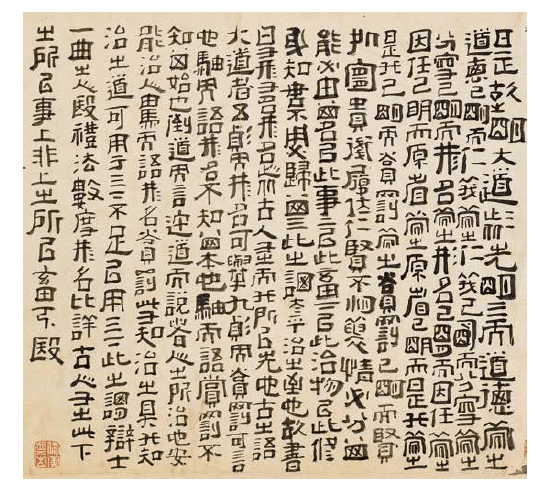 是故古之明大道者先明天而道德次之
道德已明而仁義次之仁義已明而分守次之
分守已明而形名次之形名已明而因任次之
因任已明而原省次之原省已明而是非次之
是非已明而賞罰次之賞罰已明而愚
知處宜貴賤履位仁賢不肖襲情必分其
能必由其名以此事上以此畜下以此治物以此修
身知謀不用必歸其天此之謂太平治之至也故書
曰有形有名形名者古人有之而非所以先也古之語
大道者五變而形名可舉九變而賞罰可言
也驟而語形名不知其本也驟而語賞罰不
知其始也倒道而言迕道而說者人之所治也安
能治人驟而語形名賞罰此有知治之具非知
治之道可用于天下不足以用天下此之謂辯士
一曲之人也禮法數度形名比詳古人有之此下
之所以事上非上之所以畜下也